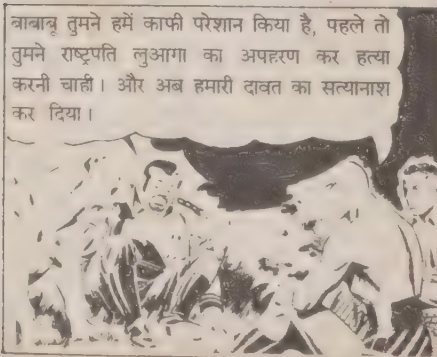 बाबाबू तुमने हमें काफी परेशान किया है, पहले तो
तुमने राष्ट्रपति लुआगा का अपहरण कर हत्या
करनी चाही। और अब हमारी दावत का सत्यानाश
कर दिया।